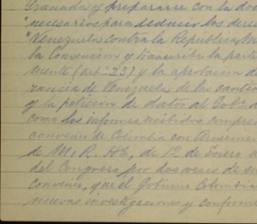 Granada y prepararse con la do
"necesarios para deducir los derec
"Venezuela contra la República
la Convención y transcribe la parte
mente (art° 23) y la aprobacion de
de Venezuela de las canti
y la peticion de datos al Gob° d
como los informes recibidos
convenio de Colombia con
de 12 de Enero
del Congreso por dos veces de
convenio, que el Gobierno Colombia
nuevas investigaciones y conform